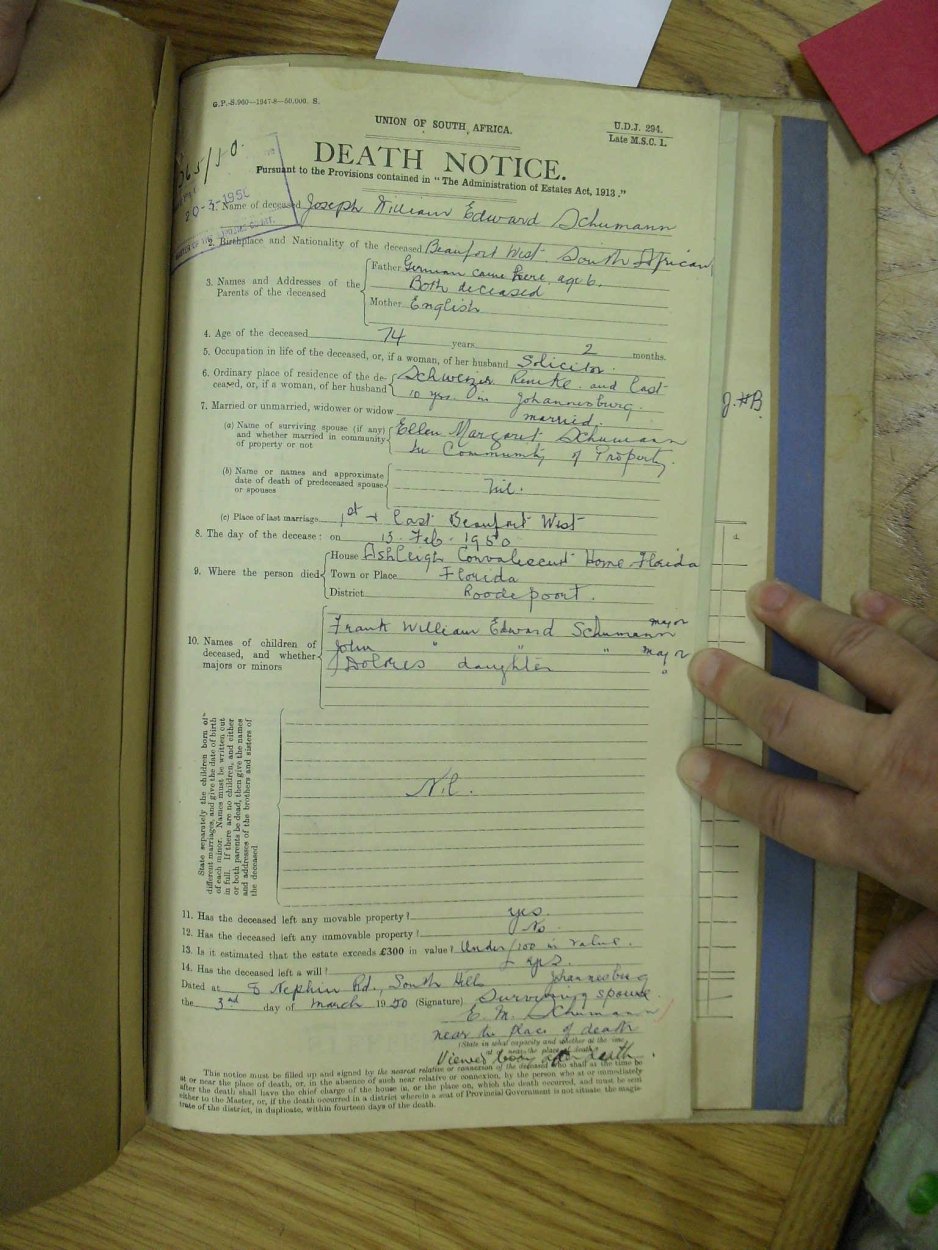 G.P.-S.960—1947-8—50,000. S.
UNION OF SOUTH AFRICA.
U.D.J. 294.
Late M.S.C. 1.
DEATH NOTICE.
Pursuant to the Provisions contained in "The Administration of Estates Act, 1913."
20-3-1950
1. Name of deceased Joseph William Edward Schumann
2. Birthplace and Nationality of the deceased Beaufort West. South African
3. Names and Addresses of the Parents of the deceased
Father German came here age 6.
Both deceased
Mother English
4. Age of the deceased 74 years 2 months.
5. Occupation in life of the deceased, or, if a woman, of her husband Solicitor.
6. Ordinary place of residence of the de-
ceased, or, if a woman, of her husband
Schweizer Reneke and last
10 yrs. in Johannesburg.
7. Married or unmarried, widower or widow married.
J.HB.
(a) Name of surviving spouse (if any)
and whether married in community
of property or not
Ellen Margaret Schumann
In Community of Property.
(b) Name or names and approximate
date of death of predeceased spouse
or spouses
Nil.
(c) Place of last marriage 1st + last Beaufort West
8. The day of the decease: on 13. Feb. 1950
9. Where the person died
House Ashleigh Convalescent Home Florida
Town or Place Florida
District Roodepoort.
10. Names of children of
deceased, and whether
majors or minors
Frank William Edward Schumann major
John " " " major
Dolores daughter "
State separately the children born of
different marriages, and give the date of birth
of each minor. Names must be written out
in full. If there are no children, and either
or both parents be dead, then give the names
and addresses of the brothers and sisters of
the deceased
Nil.
11. Has the deceased left any movable property? yes.
12. Has the deceased left any unmovable property? No.
13. Is it estimated that the estate exceeds £300 in value? Under £100 in value.
14. Has the deceased left a will? yes.
Dated at 8 Nephin Rd., South Hills Johannesburg
the 3rd day of March 1950 (Signature) Surviving spouse
E. M. Schumann
near the place of death
(State in what capacity and whether at the time
at or near the place of death)
Viewed body after death.
This notice must be filled up and signed by the nearest relative or connexion of the deceased who shall at the time be
at or near the place of death, or, in the absence of such near relative or connexion, by the person who at or immediately
after the death shall have the chief charge of the house in, or the place on, which the death occurred, and must be sent
either to the Master, or, if the death occurred in a district wherein a seat of Provincial Government is not situate, the magis-
trate of the district, in duplicate, within fourteen days of the death.